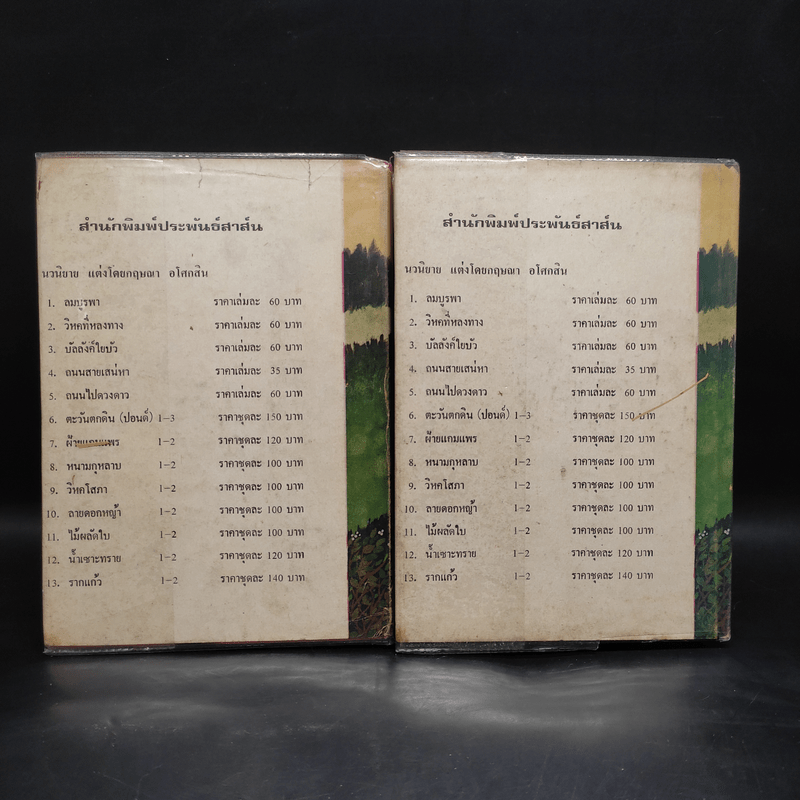 สำนักพิมพ์ประพันธ์สาส์น
นวนิยาย แต่งโดยกฤษณา อโศกสิน
1. ลมบูรพา ราคาเล่มละ 60 บาท
2. วิหคที่หลงทาง ราคาเล่มละ 60 บาท
3. บัลลังก์ใยบัว ราคาเล่มละ 60 บาท
4. ถนนสายเสน่หา ราคาเล่มละ 35 บาท
5. ถนนไปดวงดาว ราคาเล่มละ 60 บาท
6. ตะวันตกดิน (ปอนด์) 1-3 ราคาชุดละ 150 บาท
7. ฝ้ายแกมแพร 1-2 ราคาชุดละ 120 บาท
8. หนามกุหลาบ 1-2 ราคาชุดละ 100 บาท
9. วิหคโสภา 1-2 ราคาชุดละ 100 บาท
10. ลายดอกหญ้า 1-2 ราคาชุดละ 100 บาท
11. ไม้ผลัดใบ 1-2 ราคาชุดละ 100 บาท
12. น้ำเซาะทราย 1-2 ราคาชุดละ 120 บาท
13. รากแก้ว 1-2 ราคาชุดละ 140 บาท
สำนักพิมพ์ประพันธ์สาส์น
นวนิยาย แต่งโดยกฤษณา อโศกสิน
1. ลมบูรพา ราคาเล่มละ 60 บาท
2. วิหคที่หลงทาง ราคาเล่มละ 60 บาท
3. บัลลังก์ใยบัว ราคาเล่มละ 60 บาท
4. ถนนสายเสน่หา ราคาเล่มละ 35 บาท
5. ถนนไปดวงดาว ราคาเล่มละ 60 บาท
6. ตะวันตกดิน (ปอนด์) 1-3 ราคาชุดละ 150 บาท
7. ฝ้ายแกมแพร 1-2 ราคาชุดละ 120 บาท
8. หนามกุหลาบ 1-2 ราคาชุดละ 100 บาท
9. วิหคโสภา 1-2 ราคาชุดละ 100 บาท
10. ลายดอกหญ้า 1-2 ราคาชุดละ 100 บาท
11. ไม้ผลัดใบ 1-2 ราคาชุดละ 100 บาท
12. น้ำเซาะทราย 1-2 ราคาชุดละ 120 บาท
13. รากแก้ว 1-2 ราคาชุดละ 140 บาท